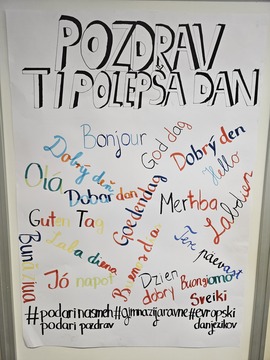 POZDRAV
TI POLEPŠA DAN
Bonjour
God dag
Dobrý deň
Dobrý den
Hello
Olá
Dobar dan
Goedendag
Merhba
Labdien
Guten Tag
Laba diena
Tere päevast
Bună ziua
Buenos días
Jó napot
Dzien
dobry
Buongiorno
Sveiki
#podarinasmeh #gimnazijaravne #evropski
podari pozdrav
danjezikov